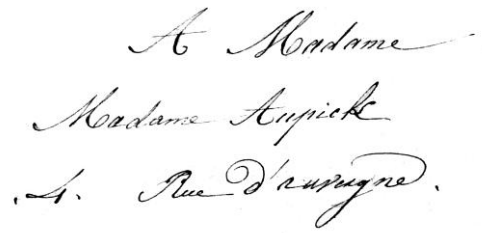 A Madame
Madame Aupick
.4. Rue d'auvergne.